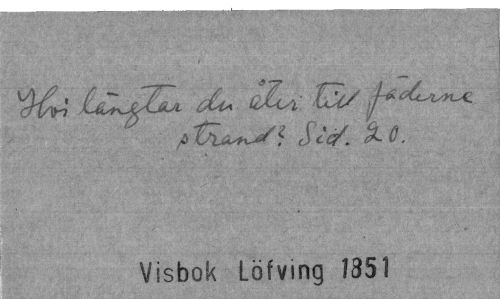 Hvi längtar du åter till fäderne
strand? Sid. 20.
Visbok Löfving 1851